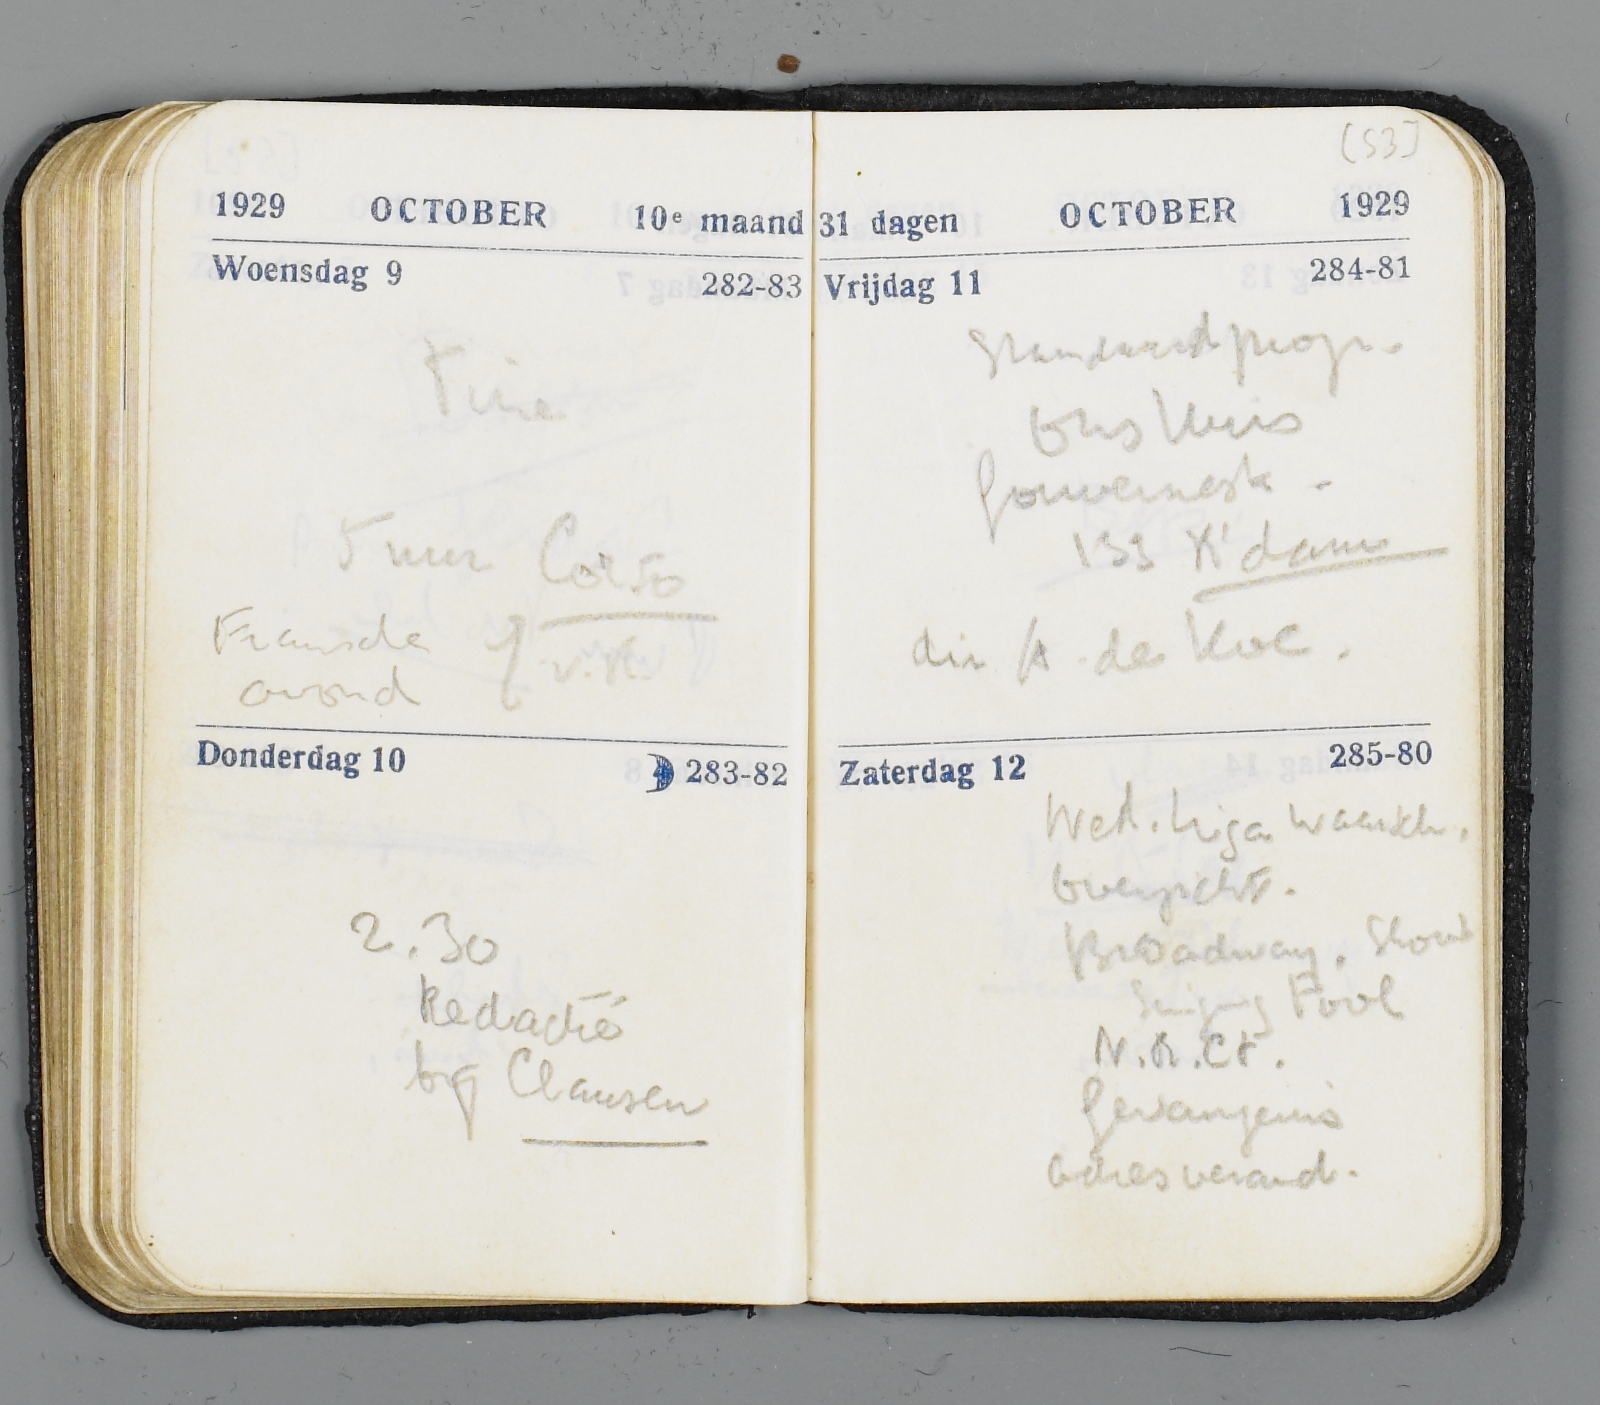 1929 OCTOBER 10e maand
Woensdag 9 282-83
Tine
5 uur Corso
Fransche
avond
v.R.
Donderdag 10 283-82
2.30
Redactie
bij Clausen
[53]
31 dagen OCTOBER 1929
Vrijdag 11 284-81
Standaardprogr.
Ons Huis
Gouvernestr.
133 R'dam
dir A. de Koe.
Zaterdag 12 285-80
Ned. Liga waarsch.
Overzicht.
Broadway.
Singing Fool
N.R.Ct.
Gevangenis
adresverand.